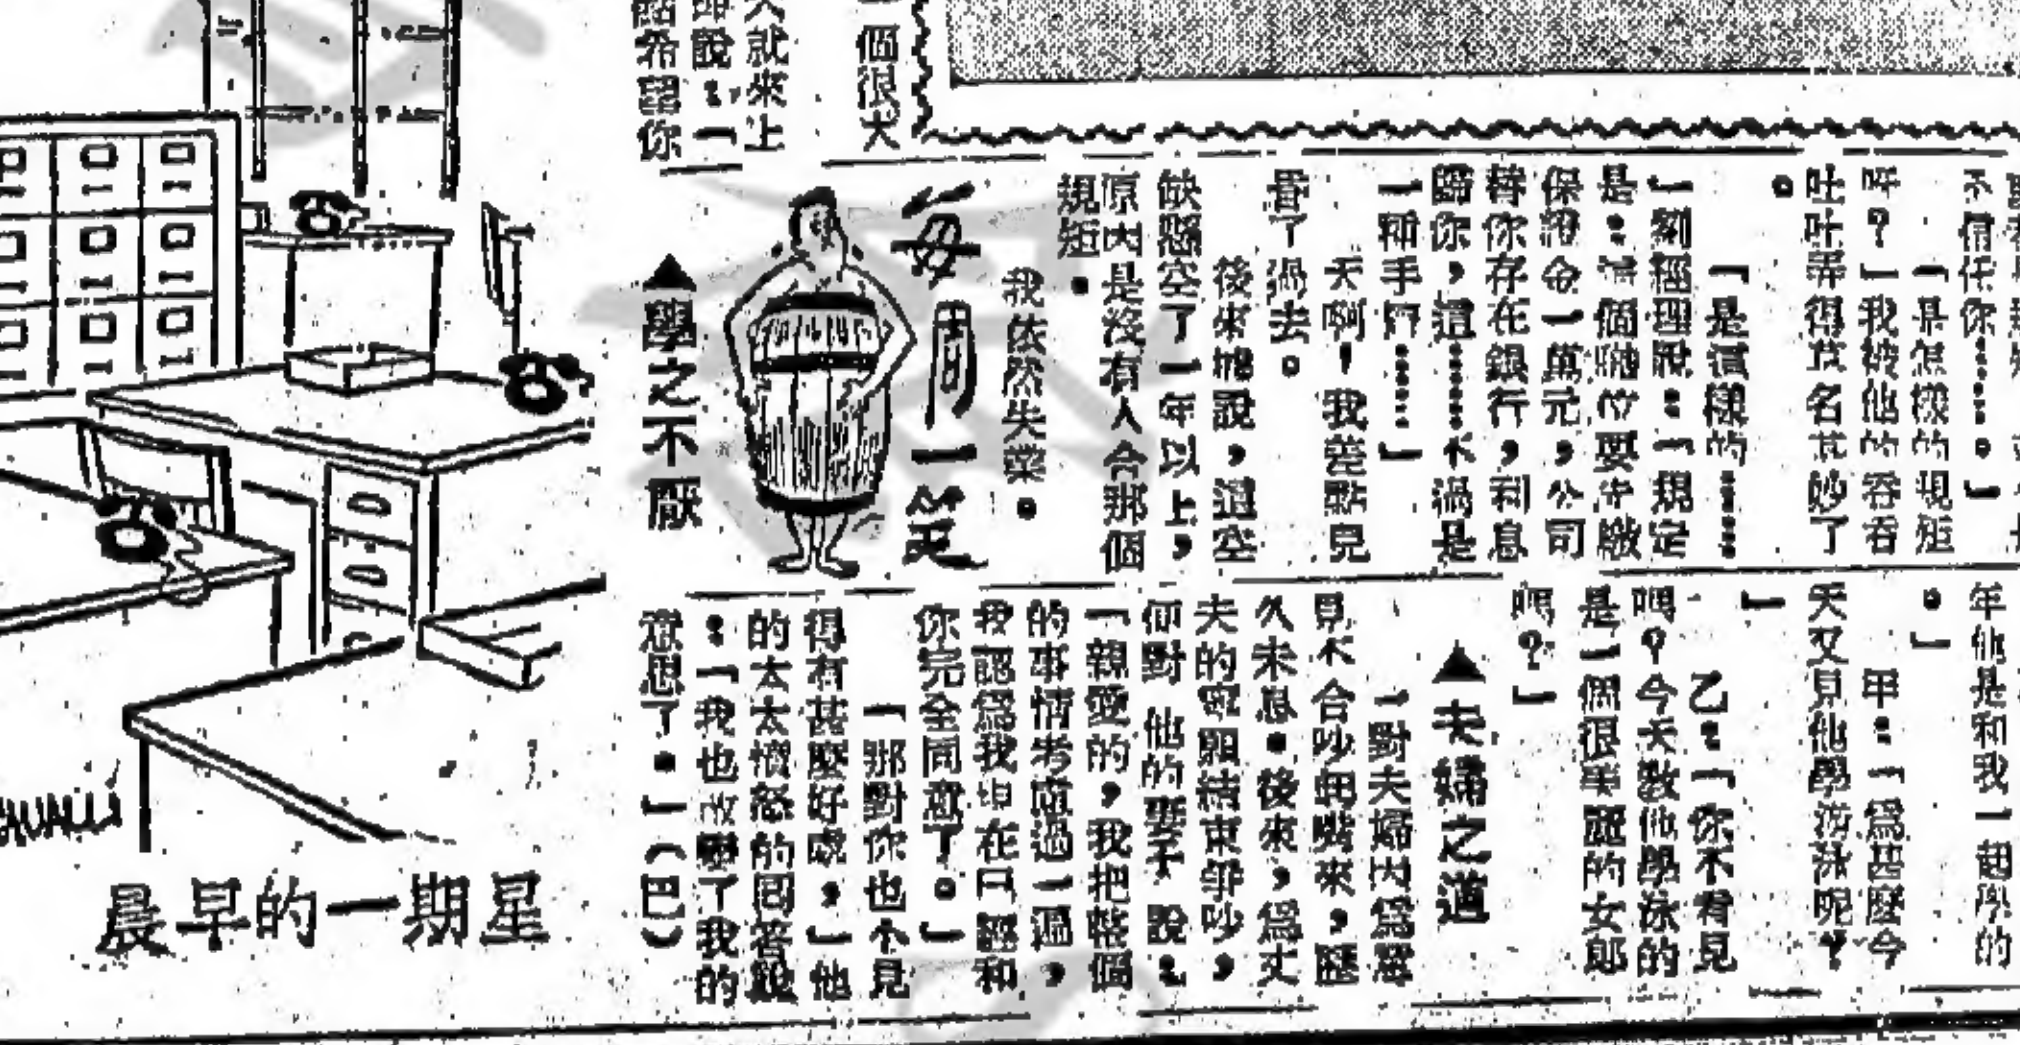 一個很大
人就來上
不信任你……。」
「是怎樣的規矩
呀?」我被他的吞吞
吐吐弄得莫名其妙了
。
「是這樣的……
」劉經理說:「規定
是:這個職位要先繳
保證金一萬元,公司
替你存在銀行,利息
歸你,這……不過是
一種手續……」
天啊!我差點兒
暈了過去。
後來據說,這空
缺懸空了一年以上,
原因是沒有人合那個
規矩。
我依然失業。
每周一笑
▲學之不厭
年他是和我一起學的
。」
甲:「為甚麼今
天又見他學游泳呢?
」
乙:「你不看見
嗎?今天教他學泳的
是一個很美麗的女郎
嗎?」
▲夫婦之道
一對夫婦因為意
見不合吵起嘴來,歷
久未息。後來,為丈
夫的寧願結束爭吵,
便對他的妻子說:
「親愛的,我把整個
的事情考慮過一遍,
我認為我現在已經和
你完全同意了。」
「那對你也不見
得有甚麼好處,」他
的太太憤怒的回答說
:「我也改變了我的
意思了。」(巴)
星期一的早晨
CAVALLI